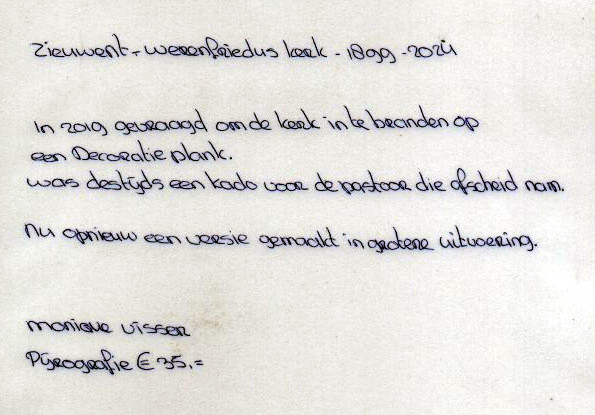 Zieuwent - werenfriedus kerk - 1899 - 2024
In 2019 gevraagd om de kerk in te branden op
een Decoratie plank.
was destijds een kado voor de pastoor die afscheid nam.
Nu opnieuw een versie gemaakt in grotere uitvoering.
monique visser
Pyrografie € 35,=